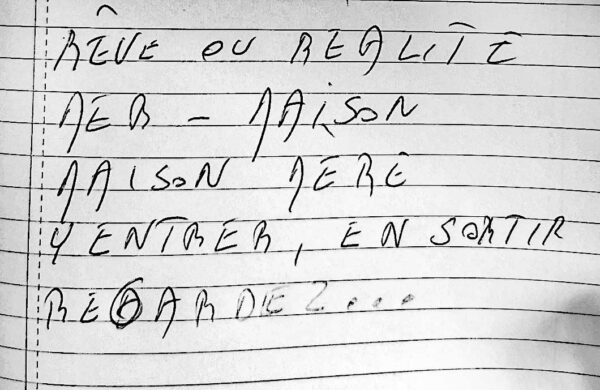 RÊVE OU REALITE
MER - MAISON
MAISON MERE
Y ENTRER, EN SORTIR
REGARDEZ...